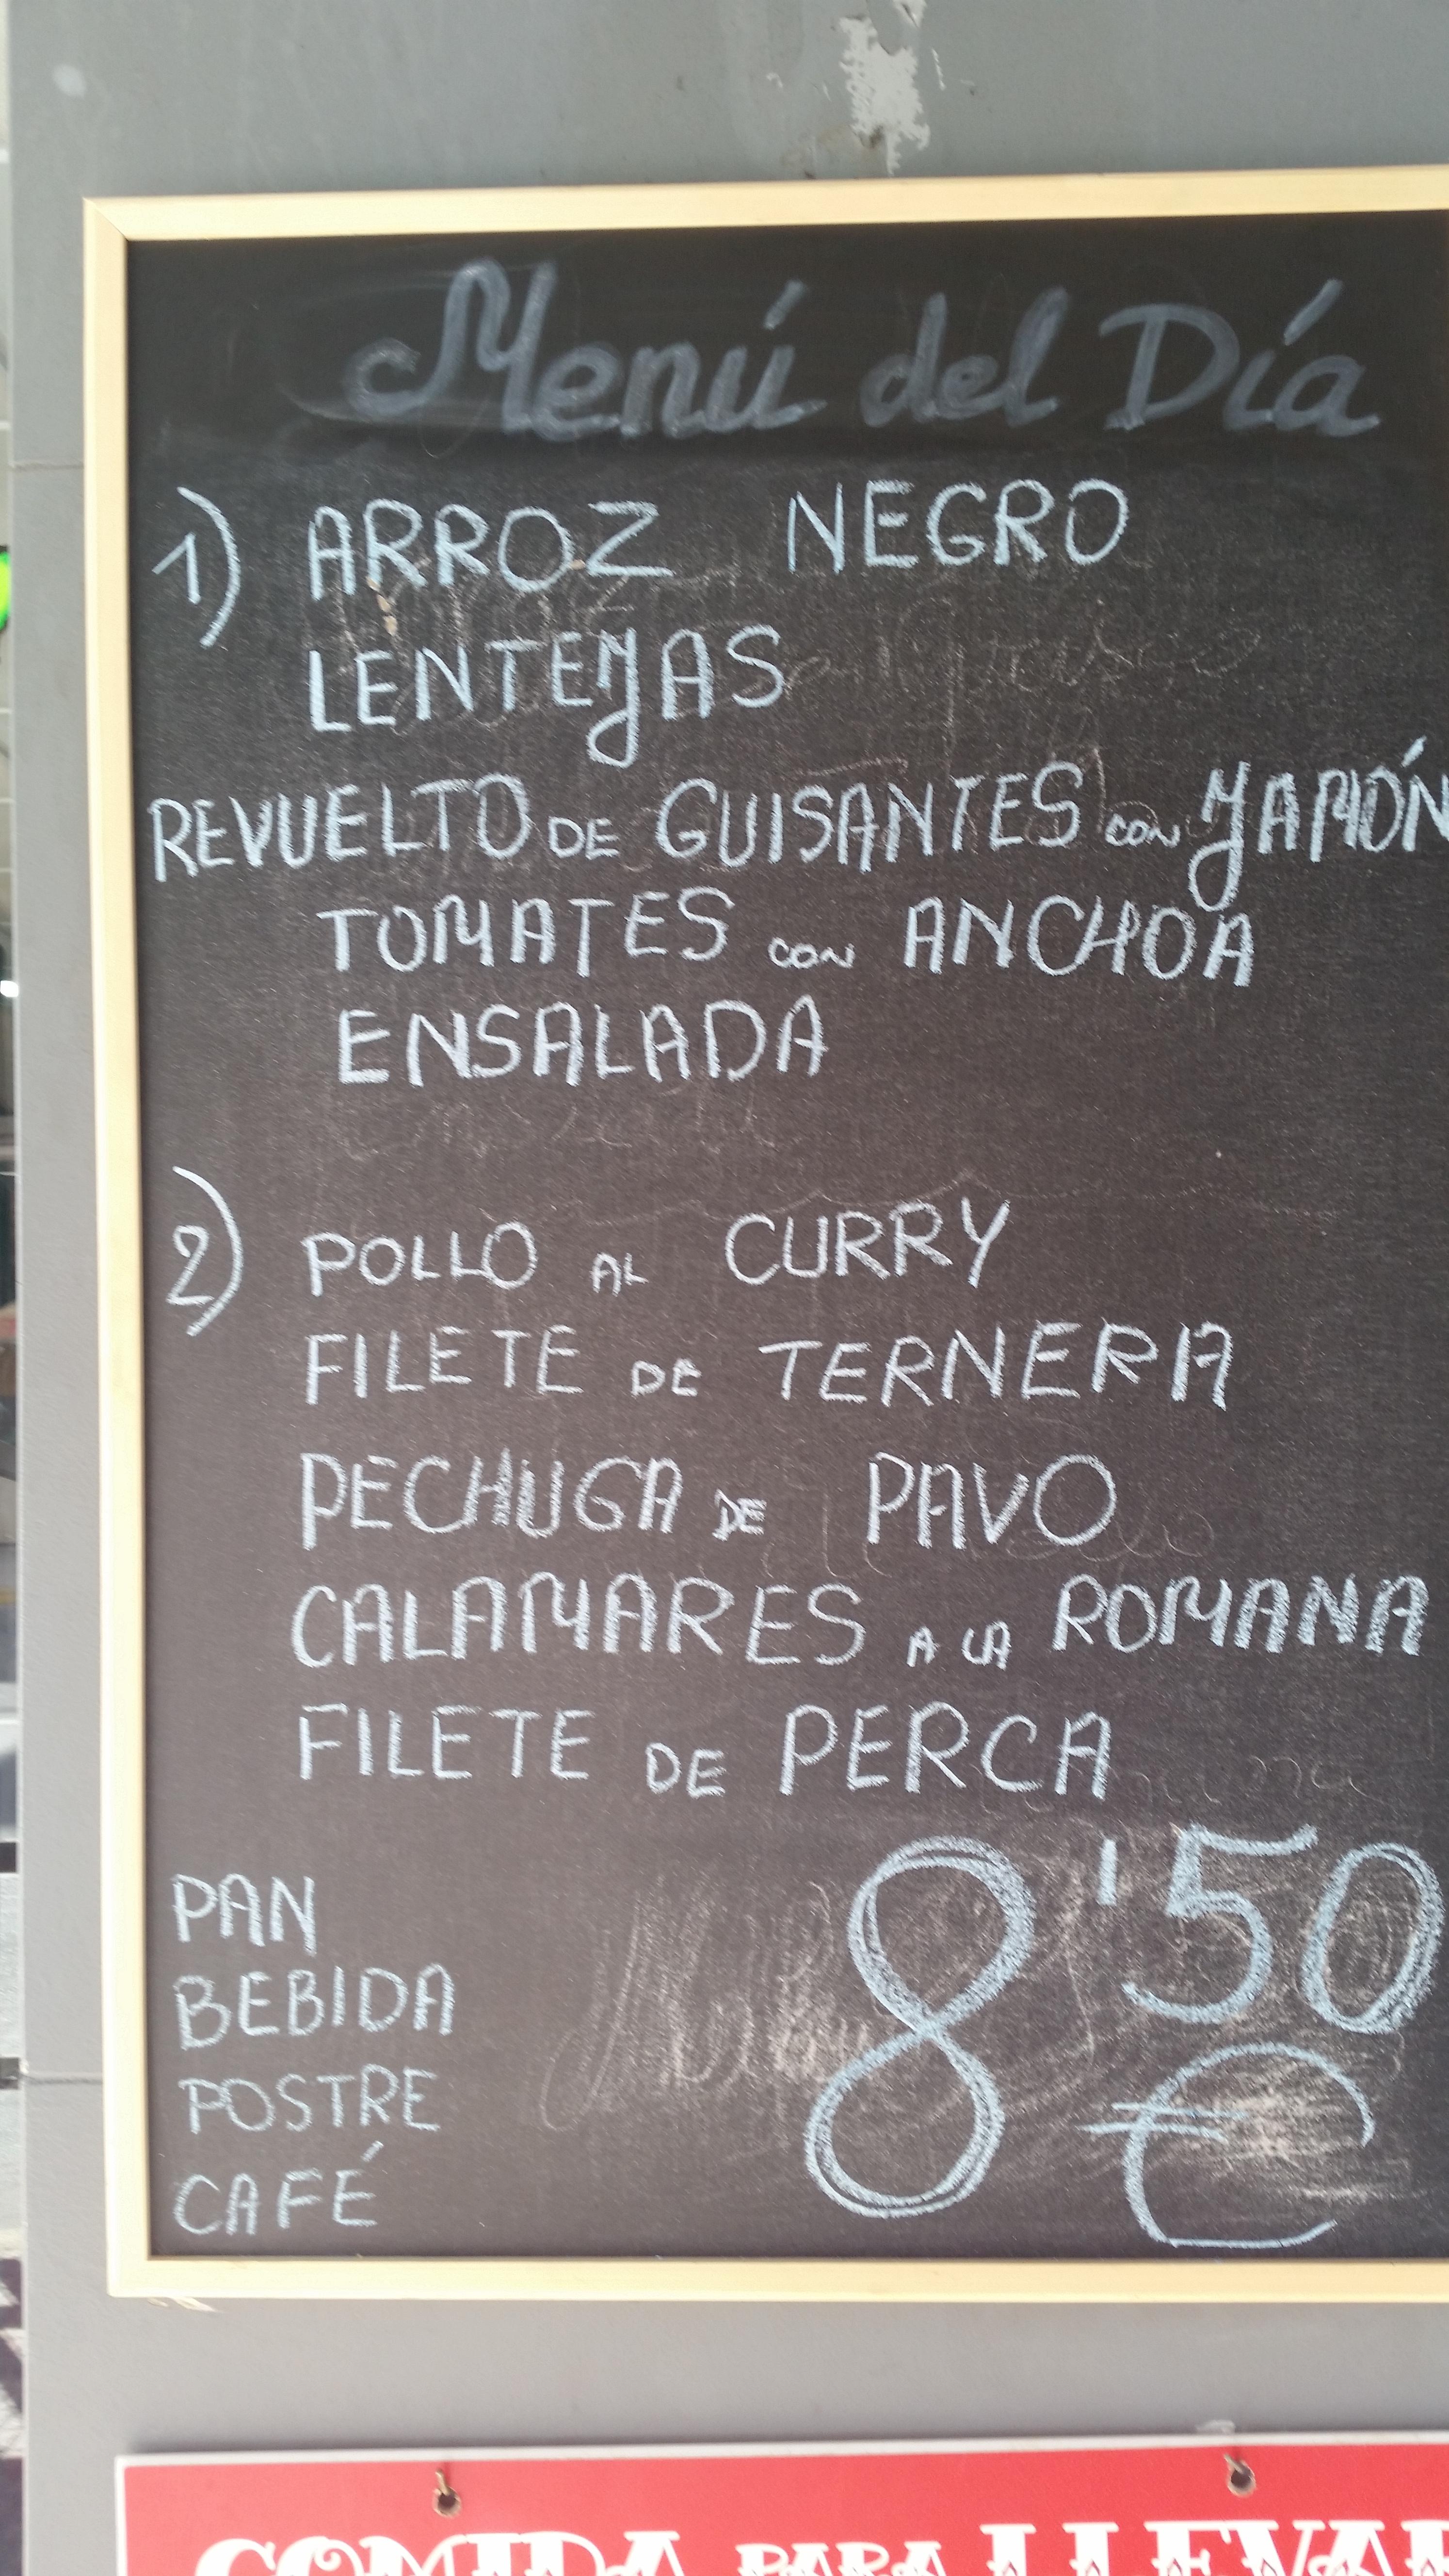 Menú del Día
1) ARROZ NEGRO
LENTEJAS
REVUELTO DE GUISANTES con JAMÓN
TOMATES con ANCHOA
ENSALADA
2) POLLO AL CURRY
FILETE DE TERNERA
PECHUGA DE PAVO
CALAMARES A LA ROMANA
FILETE DE PERCA
PAN
BEBIDA
POSTRE
CAFÉ
8'50
€
COMIDA PARA LLEVAR